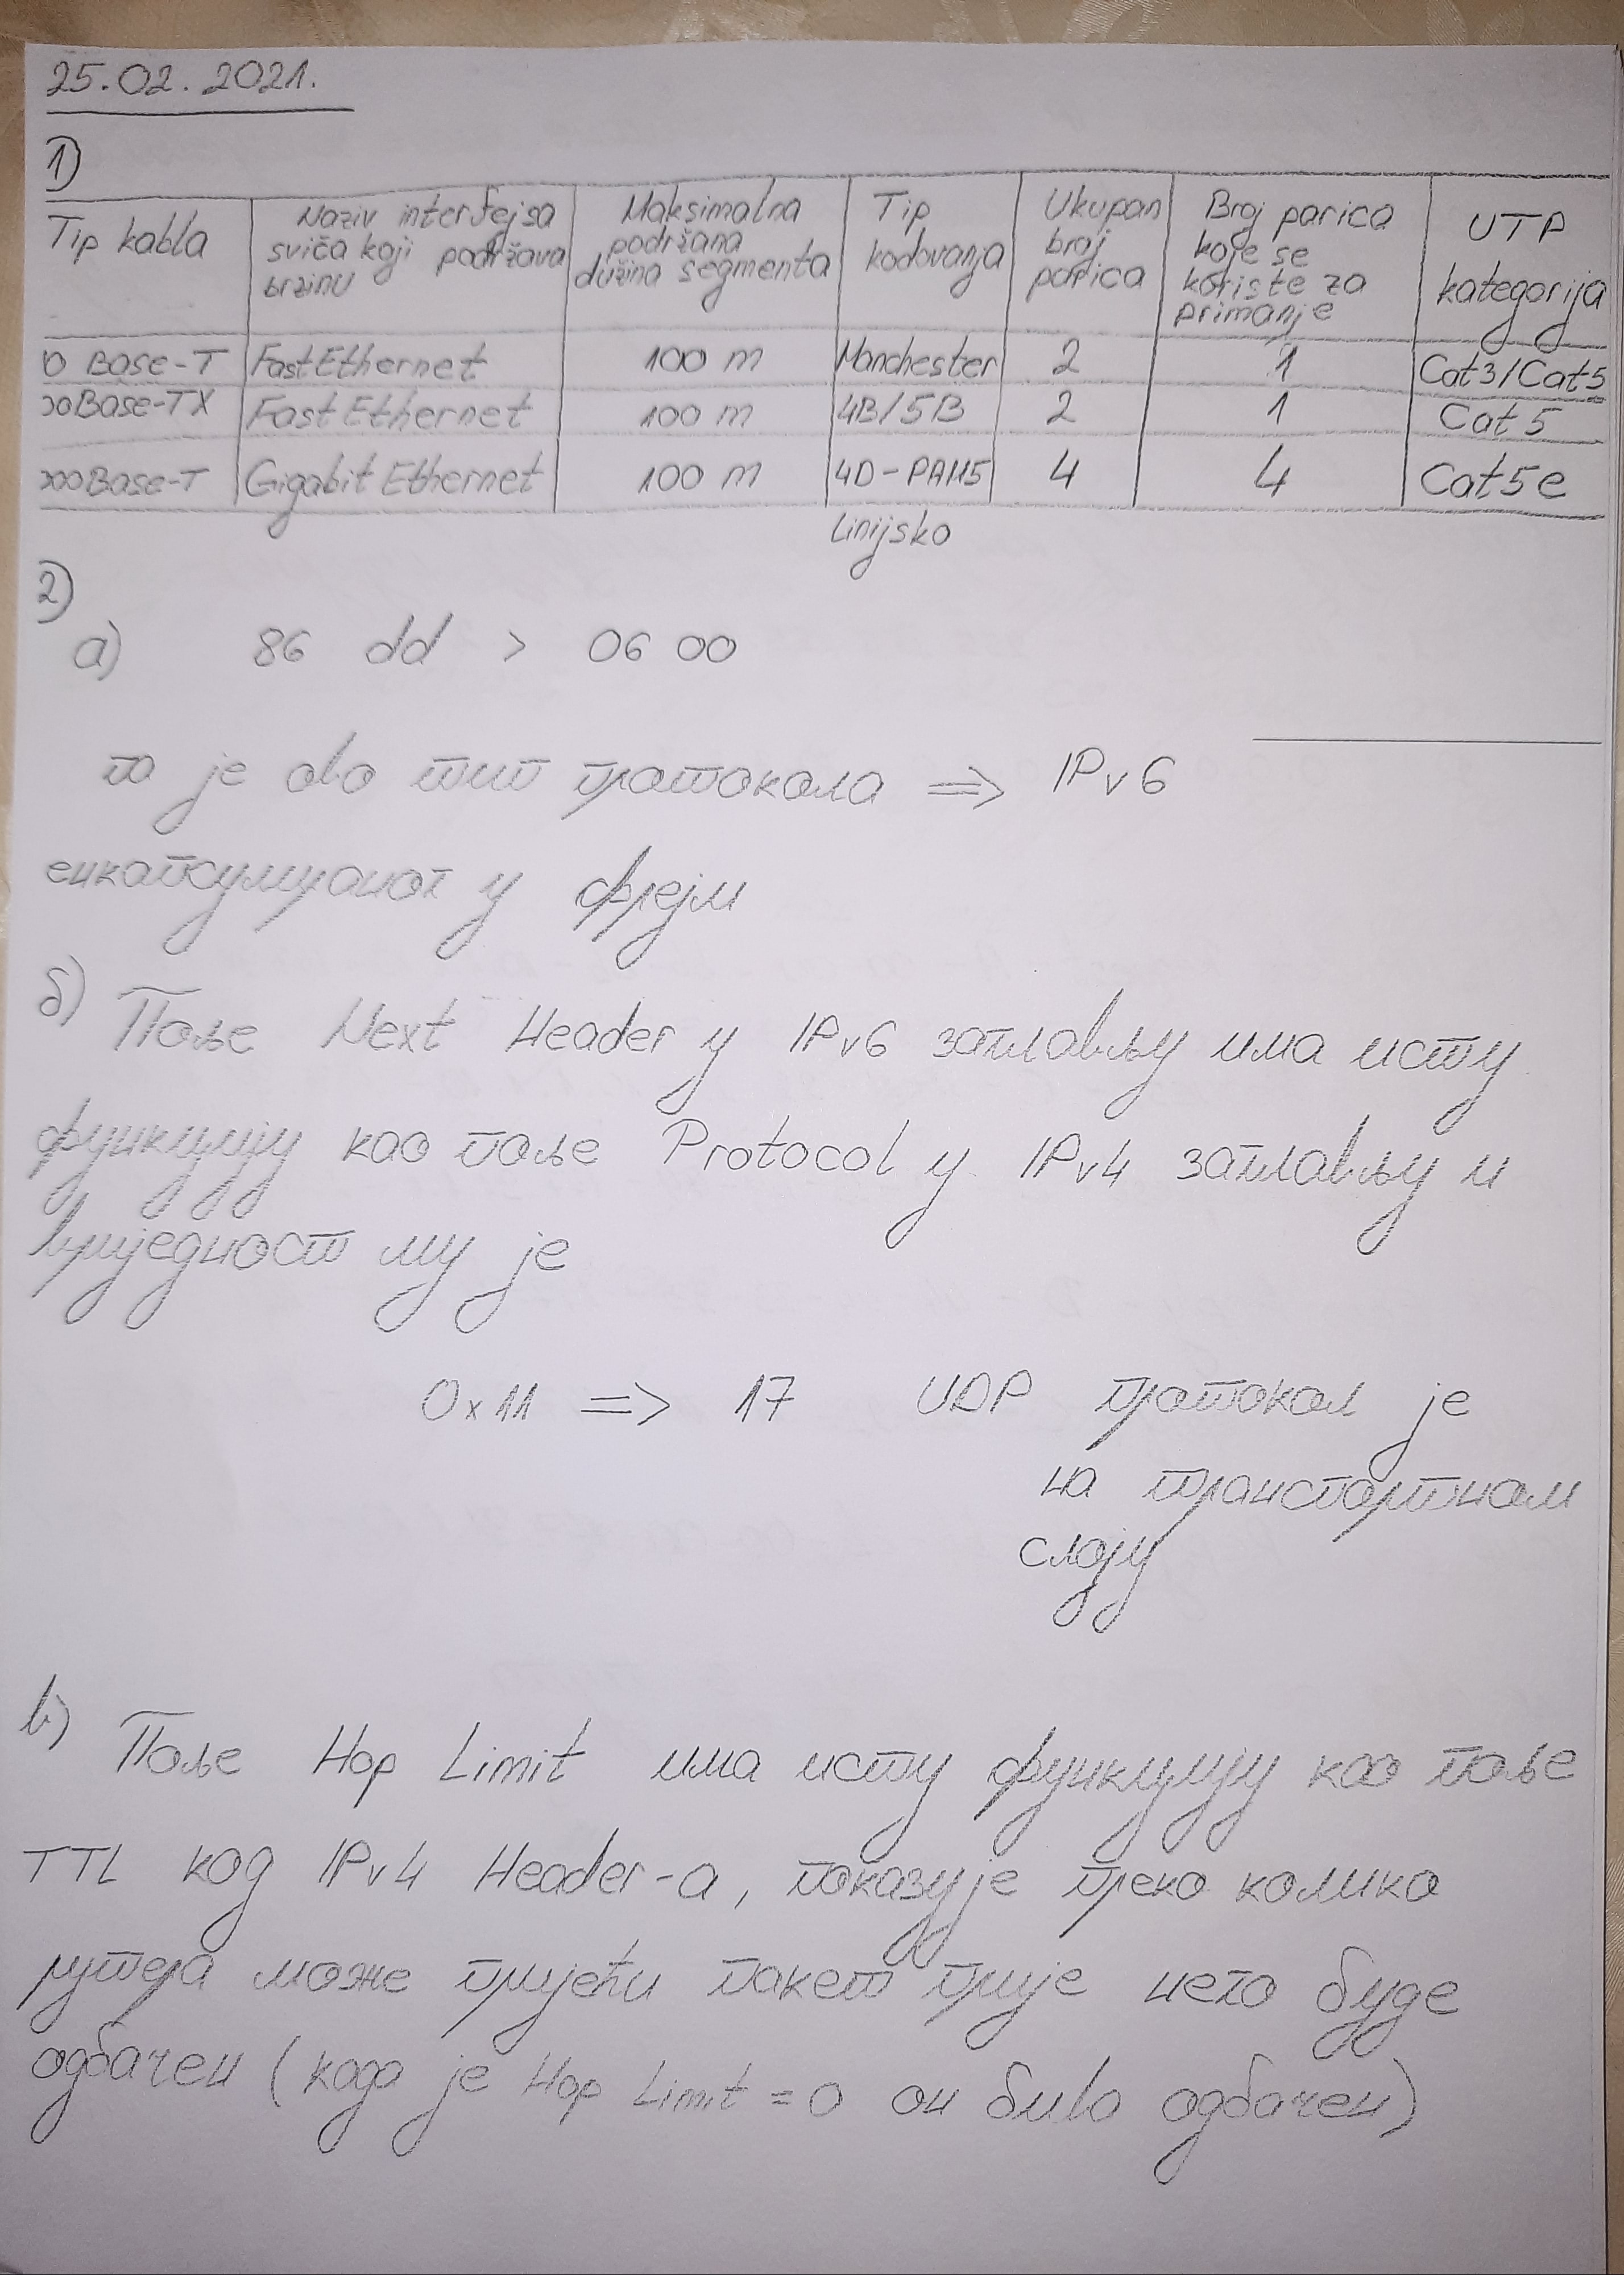 25.02.2021.
1)
Tip kabla | Naziv interfejsa sviča koji podržava brzinu | Maksimalna podržana dužina segmenta | Tip kodovanja | Ukupan broj parica | Broj parica koje se koriste za primanje | UTP kategorija
0 Base-T | FastEthernet | 100 m | Manchester | 2 | 1 | Cat3/Cat5
00Base-TX | Fast Ethernet | 100 m | 4B/5B | 2 | 1 | Cat 5
000Base-T | Gigabit Ethernet | 100 m | 4D-PAM5 | 4 | 4 | Cat5e
Linijsko
2)
а) 86 dd > 06 00
па је ово тип протокола => IPv6
енкапсулираног у фрејм
б) Поље Next Header у IPv6 заглављу има исту
функцију као поље Protocol у IPv4 заглављу и
вриједност му је
0x11 => 17 UDP протокол је
на транспортном
слоју
в) Поље Hop Limit има исту функцију као поље
TTL код IPv4 Header-a, показује преко колико
рутера може пријећи пакет прије него буде
одбачен (када је Hop Limit = 0 он бива одбачен)